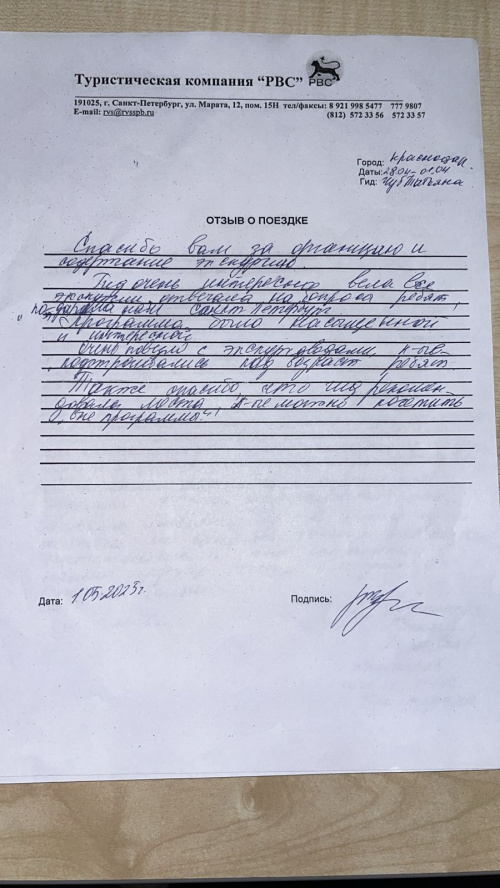 Туристическая компания “РВС”
РВС
191025, г. Санкт-Петербург, ул. Марата, 12, пом. 15Н тел/факсы: 8 921 998 5477 777 9807
E-mail: rvs@rvsspb.ru (812) 572 33 56 572 33 57
Город: Краснодар.
Даты: 28.04-01.04
Гид: Чуб Татьяна
ОТЗЫВ О ПОЕЗДКЕ
Спасибо вам за организацию и
содержание экскурсии.
Гид очень интересно вела все
экскурсии, отвечала на вопроса ребят,
нам Санкт-Петербург
Программа была насыщенной
и интересной
Очень повезло с экскурсоводами, к-ые
подстраивались под возраст ребят.
Также спасибо, что гид рекомен-
довала места, к-ые можно посетить
"вне программы".
Дата: 1.05.2023г.
Подпись: